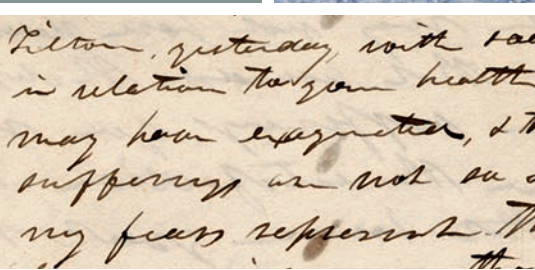 Tilton, yesterday, with
in relation to your health
may have exagerated, &
sufferings are not so
my fears represent